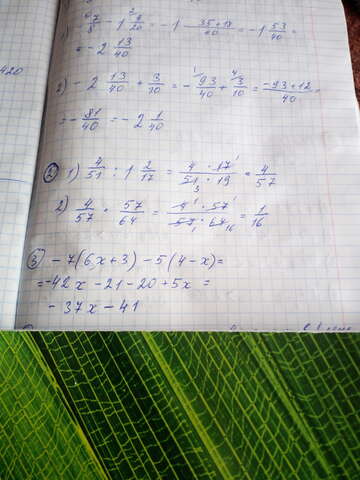 - 7/8 - 1 9/20 = - 1 35+18/40 = - 1 53/40 =
= - 2 13/40
2) - 2 13/40 + 3/10 = - 93/40 + 3/10 = -93+12/40 =
= - 81/40 = - 2 1/40
420
② 1) 4/51 : 1 2/17 = 4 · 17/51 · 19 = 4/57
2) 4/57 · 57/64 = 4 · 57/57 · 64 = 1/16
③ - 7(6x+3) - 5(4-x) =
= -42x - 21 - 20 + 5x =
- 37x - 41